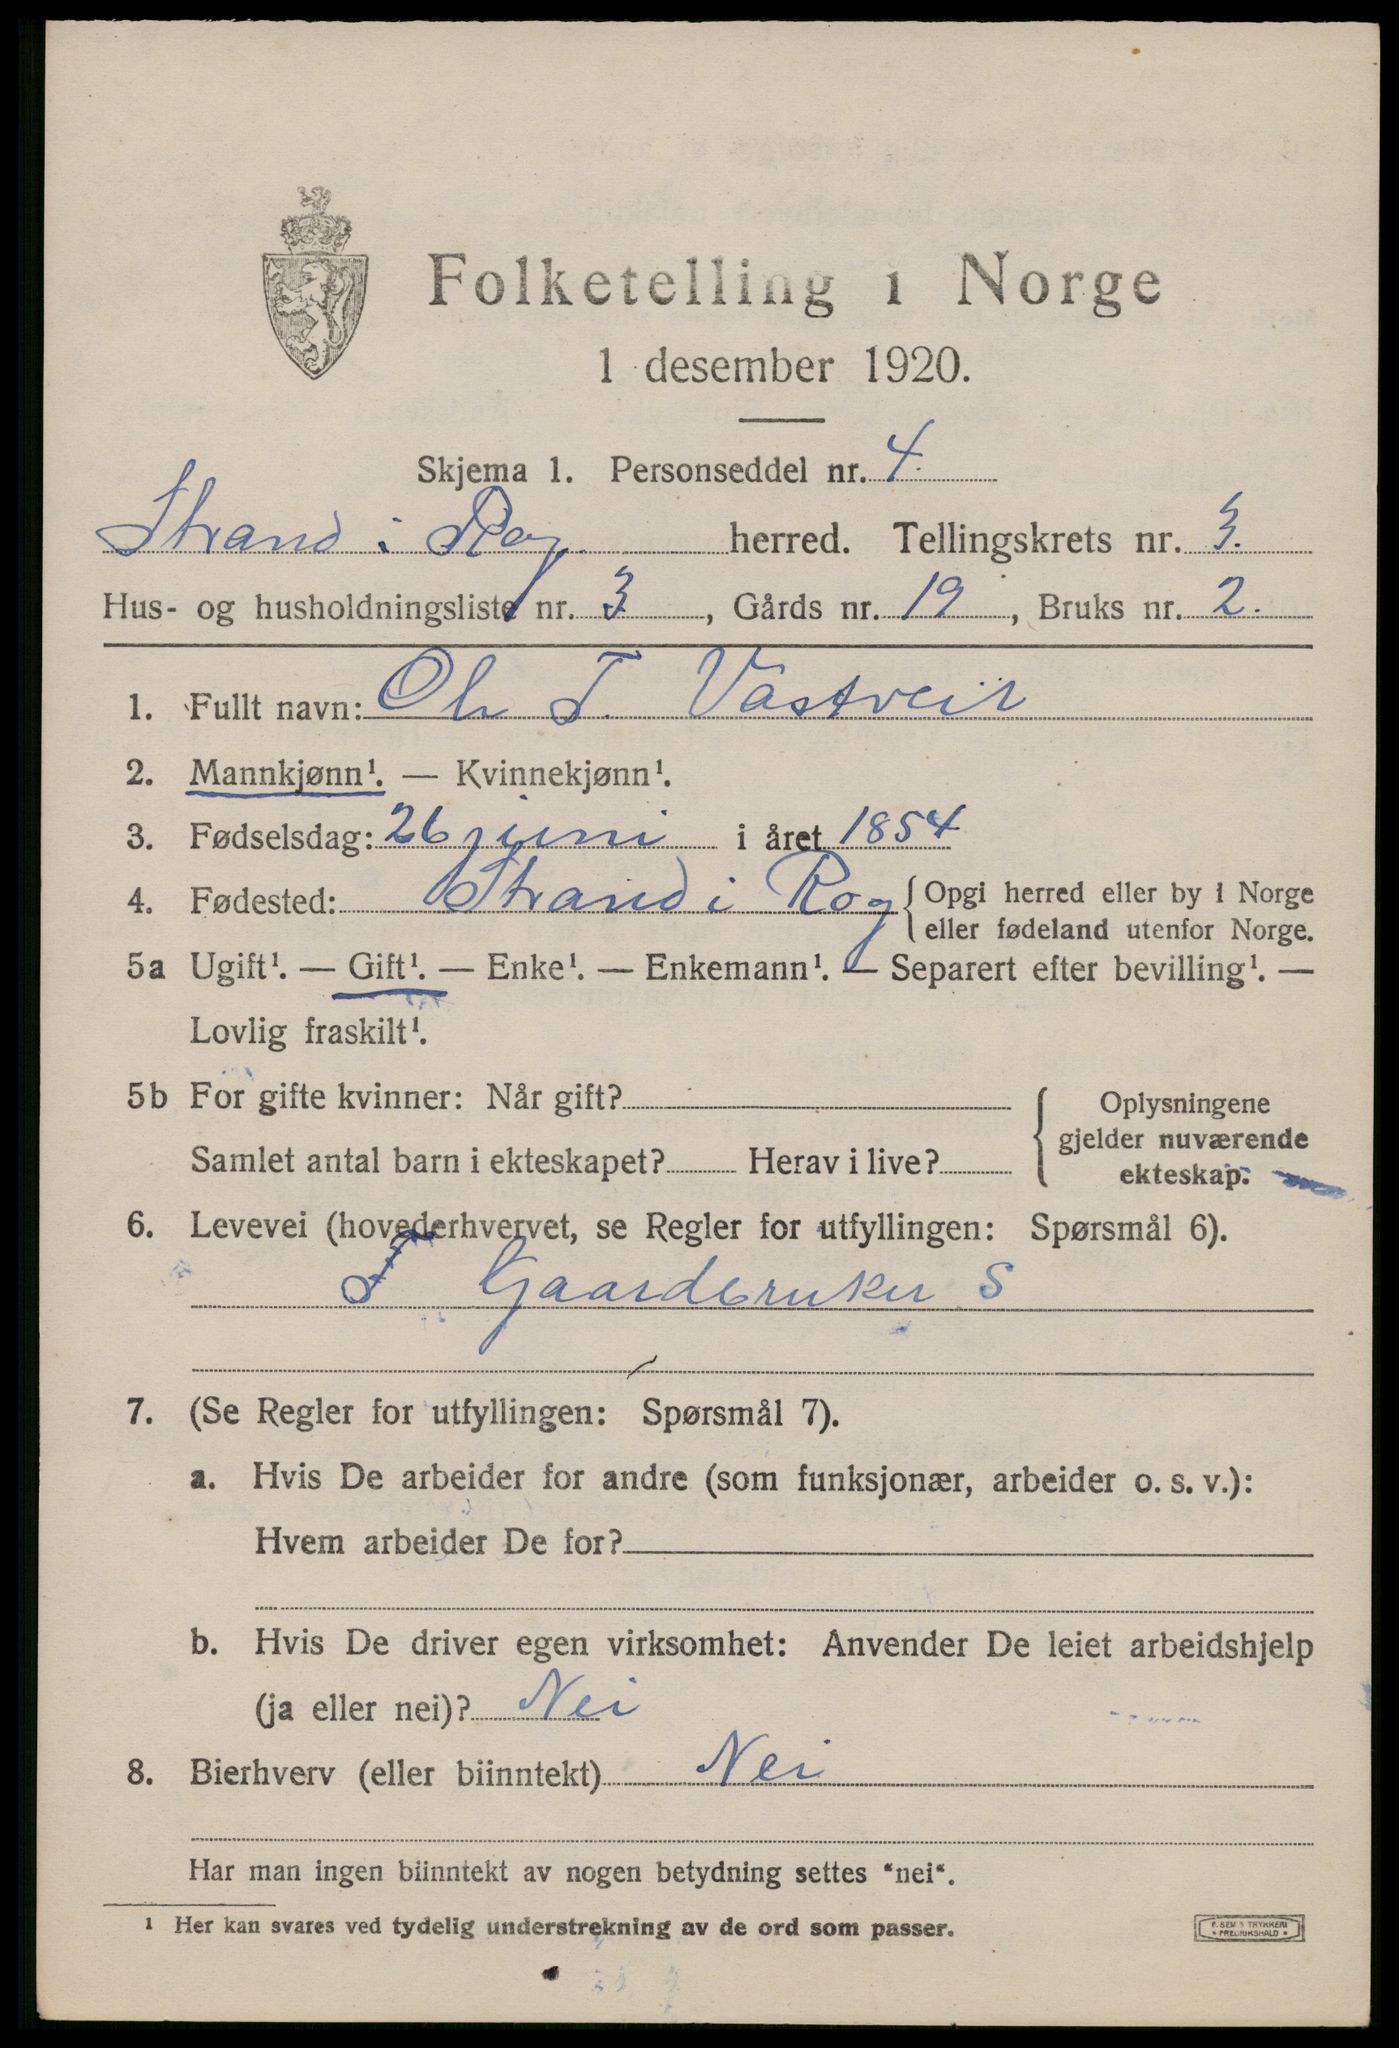 Folketelling i Norge
1 desember 1920.
Skjema 1. Personseddel nr. 4.
Strand i Rog. herred. Tellingskrets nr. 3.
Hus- og husholdningsliste nr. 3, Gårds nr. 19, Bruks nr. 2.
1. Fullt navn: Ole T. Vastveit
2. Mannkjønn¹. — Kvinnekjønn¹.
3. Fødselsdag: 26 juni i året 1854
4. Fødested: Strand i Rog { Opgi herred eller by i Norge
eller fødeland utenfor Norge.
5a Ugift¹. — Gift¹. — Enke¹. — Enkemann¹. — Separert efter bevilling¹. —
Lovlig fraskilt¹.
5b For gifte kvinner: Når gift?
Samlet antal barn i ekteskapet? Herav i live?
{ Oplysningene
gjelder nuværende
ekteskap.
6. Levevei (hovederhvervet, se Regler for utfyllingen: Spørsmål 6).
F Gaardbruker S
7. (Se Regler for utfyllingen: Spørsmål 7).
a. Hvis De arbeider for andre (som funksjonær, arbeider o. s. v.):
Hvem arbeider De for?
b. Hvis De driver egen virksomhet: Anvender De leiet arbeidshjelp
(ja eller nei)? Nei
8. Bierhverv (eller biinntekt) Nei
Har man ingen biinntekt av nogen betydning settes "nei".
¹ Her kan svares ved tydelig understrekning av de ord som passer.
F. SEM'S TRYKKERI
* FREDRIKSHALD *